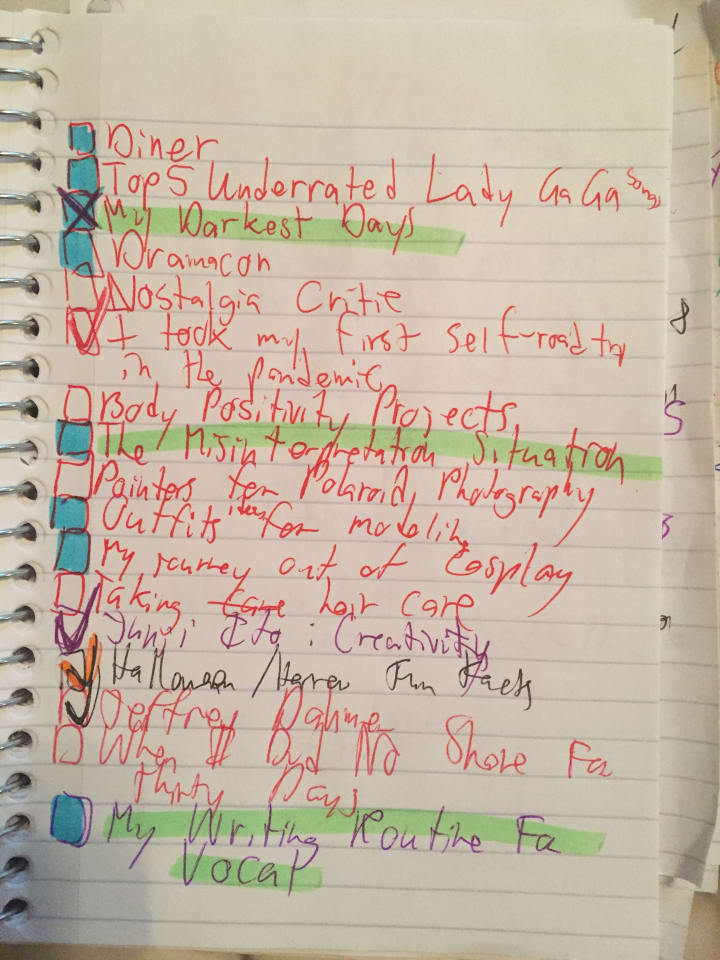 Diner
Top 5 Underrated Lady GaGa Songs
My Darkest Days
Dramacon
Nostalgia Critic
I took my first self-road trip
in the pandemic
Body Positivity Projects
The Misinterpretation Situation
Pointers for Polaroid Photography
Outfits ideas for modeling
My journey out of Cosplay
Taking Care hair care
Junji Ito: Creativity
Halloween/Horror Fun Facts
Jeffrey Dahmer
When I Did No Shave For
Thirty Days
My Writing Routine For
Vocal
8
S
3